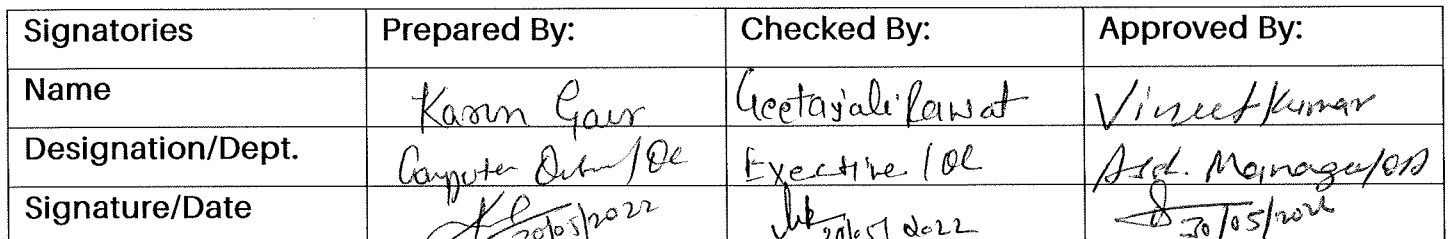 Signatories Prepared By: Checked By: Approved By:
Name Karun Gaur Geetajali Rawat Vineet Kumar
Designation/Dept. Computer /QC Executive /QC Asst. Manager/QA
Signature/Date 30/05/2022 30/05/2022 30/05/2022